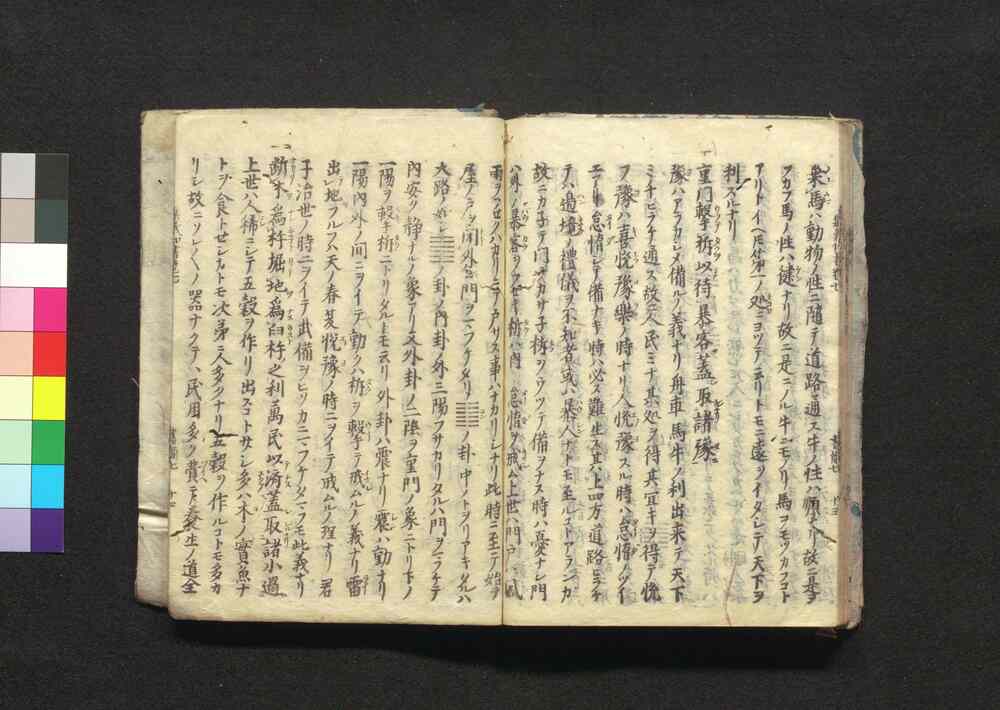 乗馬ハ動物ノ性ニ随テ道路通ス牛ノ性ハ順ナリ故ニ是ヲ
フカフ馬ノ性ハ健ナリ故ニ是ニノル牛ニモノリ馬ヲモツカフコト
アリトイヘ𪜈第一ノ処ニヨツテ云リトモニ遠ヲイタシテ天下ヲ
利スルナリ
重門撃柝以待暴客蓋取諸豫
豫ハアラカシメ備ルノ義ナリ舟車馬牛ノ利出来テ天下
ミチヒラケ通ス故人民ミナ其処ヲ得其宜キヲ得テ悦
フ豫ハ喜悦豫樂ノ時ナリ人悦豫スル時ハ怠惰ノツイ
怠惰シテ備ナキ時ハ必ス難生ス其上四方道路ミチ
テハ遠境ノ禮儀ヲ不知者或ハ暴人ナトモ至ルコトアランカ
故ニカ子テ門ヲカサ子柝ヲウツテ備ヲナス時ハ憂ナシ門
ハ外ノ暴客ヲフセキ柝ハ内ノ怠惰ヲ戒ム上世ハ門戸
雨ヲフセクハカリニテ戸サス事ハナカリシナリ此時ニ至テ始テ
屋ノ外門ヲマフケタリ䷏ノ卦中ノトヲリアキタルハ
大路ノ如シ䷏ノ卦ノ内卦ノ外三陽フサカリタルハ門ヲヘタテ
内安ク静ナルノ象アリ又外卦ノ二陰ヲ重門ノ象ニトリ下ノ
一陽ヲ撃柝ニトリタル上モ云リ外卦ハ震ナリ震ハ動ナリ
一陽内外ノ間ニヲイテ動クハ柝ヲ撃テ戒ムルノ義ナリ雷
出レ地フルフハ天ノ春夏悦豫ノ時ニヲイテ戒ムルノ理ナリ君
子治世ノ時ニヲイテ武備ヲヒソカニマフケタマフモ此義ナリ
一断木為杵掘地為臼杵之利萬民以済蓋取諸小過
上世ハ人稀ニシテ五穀ヲ作リ出スコトサノミ多カ木ノ實魚ナ
トヲ食トセシカトモ次第ニ人多クナリ五穀ヲ作ルコトモ多カ
リシ故ニソレ〱ノ器ナクテハ民用多ク費テ養生ノ道全